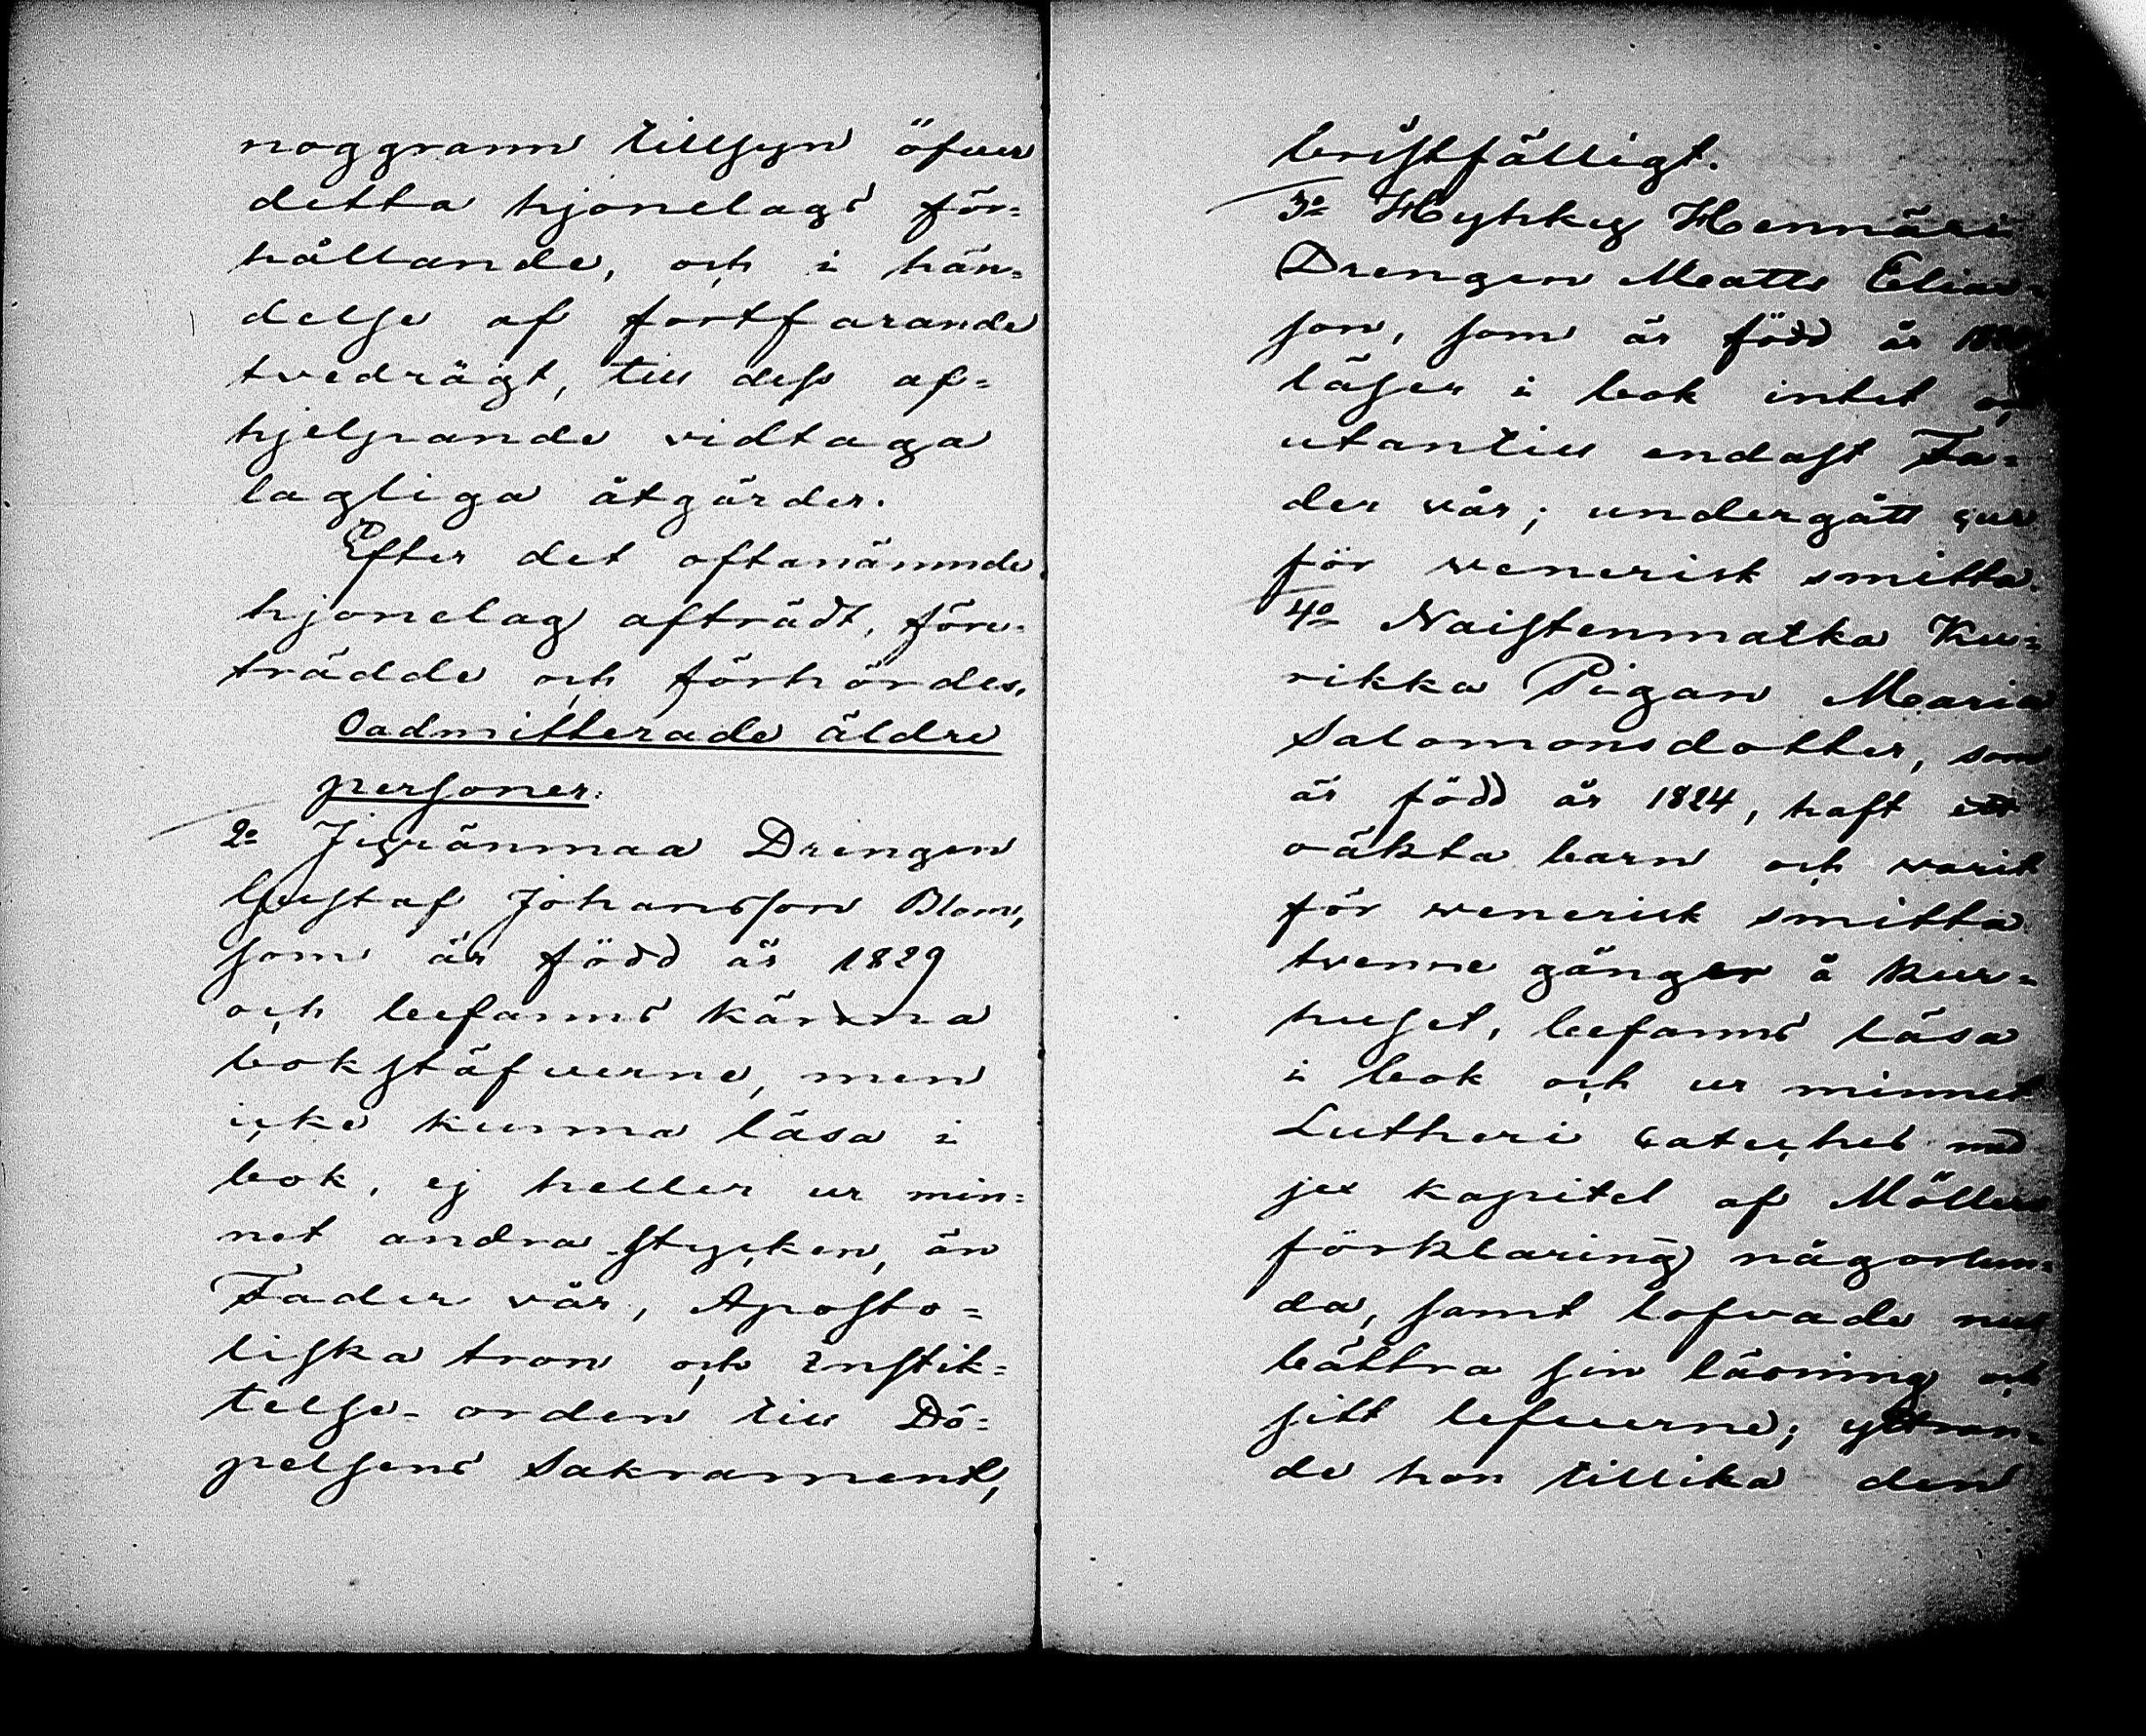 noggrann tillsyn öfver
detta hjonelags för=
hållande, och i hän=
delse af fortfarande
tvedrägt, till dess af=
hjelpande vidtaga
lagliga åtgärder.
Efter det oftanämnde
hjonelag afträdt, före=
trädde och förhördes,
Oadmitterade äldre
personer:
2o Jigränmaa Drengen
Gustaf Johansson Blom,
som är född år 1829
och befanns känna
bokstäfverne, men
icke kunna läsa i
bok, ej heller ur min=
net andra stycken, än
Fader vår, Aposto=
liska tron och instik=
telse-orden till Dö=
pelsens Sakrament,
bristfälligt.
3o Hyhky Hennäri
Drengen Matts Elias=
son, som är född år
läser i bok intet och
utantill endast Fa=
der vår; undergått cur
för venerisk smitta.
4o Naistenmatka Ku=
rikka Pigan Maria
Salomonsdotter, som
är född år 1824, haft ett
oäkta barn och varit
för venerisk smitta
tvenne gånger å kur=
huset, befanns läsa
i bok och ur minnet
Lutheri cateches med
sex kapitel af Möllers
förklaring någorlun=
da, samt lofvade nu
bättra sin läsning och
sitt lefverne; yttran=
de hon tillika den